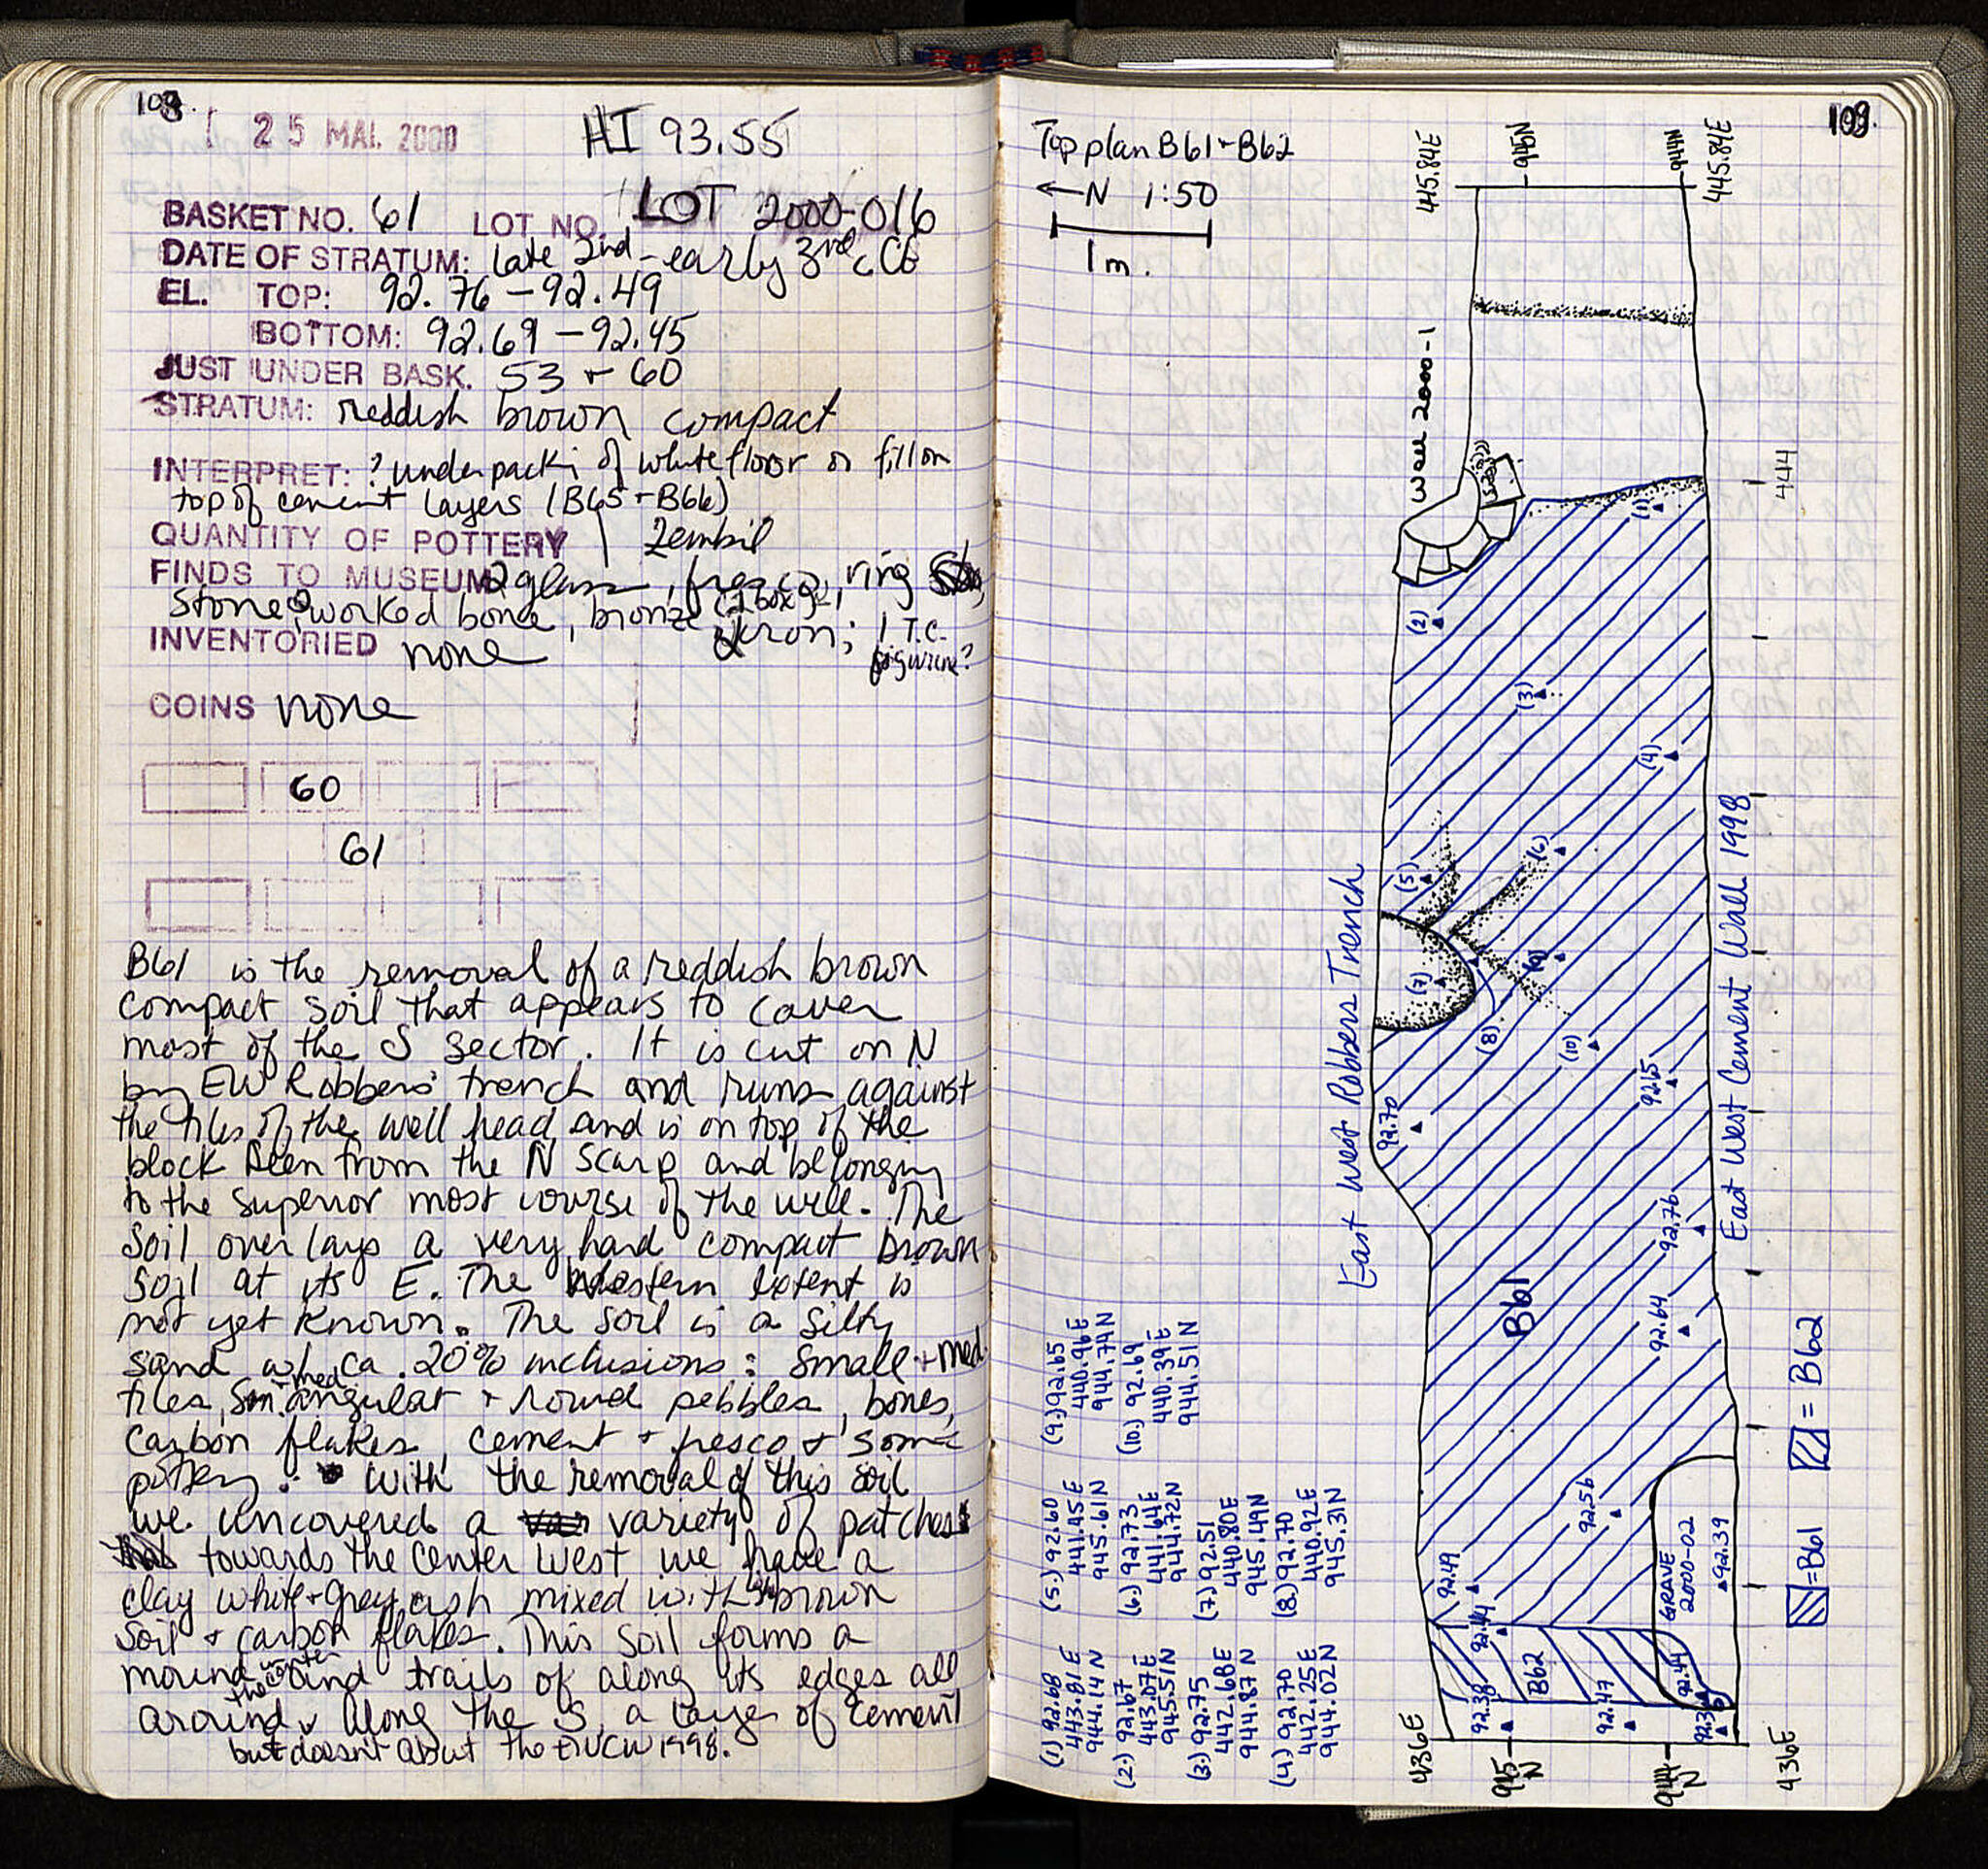 108.
25 MAI. 2000
HI 93.55
BASKET NO. 61 LOT NO. LOT 2000-016
DATE OF STRATUM: late 2nd - early 3rd c CE
EL. TOP: 92.76 - 92.49
BOTTOM: 92.69 - 92.45
JUST UNDER BASK. 53 + 60
STRATUM: reddish brown compact
INTERPRET: ? underpacki of white floor or fill on
top of cement layers (B65 + B66)
QUANTITY OF POTTERY 1 Zembil
FINDS TO MUSEUM 2 glass, fresco, ring
stone, worked bone, bronze
iron; 1 T.C.
figurine?
INVENTORIED none
COINS none
60
61
B61 is the removal of a reddish brown
compact soil that appears to cover
most of the S sector. It is cut on N
by EW Robbers' trench and runs against
the tiles of the well head and is on top of the
block seen from the N scarp and belonging
to the superior most course of the well. The
soil overlays a very hard compact brown
soil at its E. The Western extent is
not yet known. The soil is a silty
sand w/ ca. 20% inclusions: small + med.
tiles, sm + med angular + round pebbles, bones,
carbon flakes, cement + fresco + some
pottery. With the removal of this soil
we uncovered a variety of patches
towards the center west we have a
clay white + grey ash mixed with brown
soil + carbon flakes. This soil forms a
mound and trails of along its edges all
around the center. Along the S, a layer of cement
but doesnt about the EWCW 1998.
109.
Top plan B61 - B62
←N 1:50
1 m.
445.84E
945N
944N
445.84E
Well 2000-1
444
(1)
(2)
(3)
(4)
(5)
(6)
(7)
(8)
(9)
(10)
92.65
92.70
92.76
92.64
92.56
92.49
92.44
92.38
92.47
92.44
92.39
East West Robbers Trench
East West Cement Wall 1998
B61
B62
GRAVE
2000-02
436E
945
N
944
N
436E
= B61
= B62
(1) 92.68
443.81 E
944.14 N
(2.) 92.67
443.07E
945.51N
(3.) 92.75
442.68E
944.87 N
(4.) 92.70
442.25E
944.02N
(5.) 92.60
441.45 E
945.61N
(6.) 92.73
441.64E
944.72N
(7.) 92.51
440.80E
945.49N
(8.) 92.70
440.92E
945.31N
(9.) 92.65
440.96E
944.74N
(10.) 92.69
440.39E
944.51N